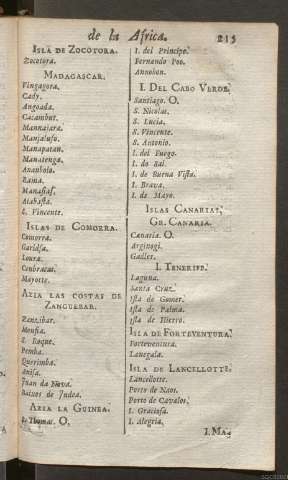 de la Africa. 215
ISLA DE ZOCOTORA.
Zocotora.
MADAGASCAR.
Vingagora.
Cady.
Angoada.
Cacambut.
Mannajara.
Manjalufo.
Manapatan.
Manatenga.
Ananbolo.
Rama.
Manafiaf.
Atabasta.
S. Vincente.
ISLAS DE COMORRA.
Comorra.
Gardsa.
Loura.
Cnubracas.
Mayotte.
AZIA LAS COSTAS DE
ZANGUEBAR.
Zanzibar.
Monfia.
S. Roque.
Pemba.
Querimba.
Anisa.
Juan da Nova.
Baixos de Judea.
AZIA LA GUINEA.
S. Thomas. O.
I. del Principe.
Fernando Poo.
Annobon.
I. DEL CABO VERDE.
Santiago. O.
S. Nicolas.
S. Lucia.
S. Vincente.
S. Antonio.
I. del Fuego.
I. do Sal.
I. de Buena Vista.
I. Brava.
I. de Mayo.
ISLAS CANARIAS.
GR. CANARIA.
Canaria. O.
Arginogi.
Gadler.
I. TENERIFE.
Laguna.
Santa Cruz.
Isla de Gomer.
Isla de Palma.
Isla de Hierro.
ISLA DE FORTEVENTURA.
Forteventura.
Lanegala.
ISLA DE LANCELLOTTE.
Lancellotte.
Porto de Naos.
Porto de Cavalos.
I. Graciosa.
I. Alegria.
I. MA-